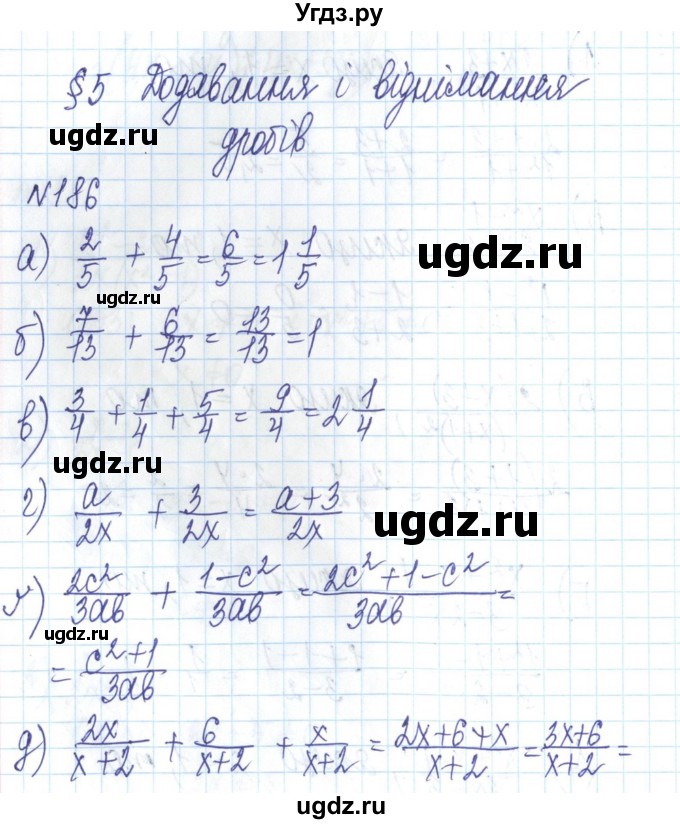 Угдз.ру
§5 Додавання і віднімання
ugdz.ru
дробів
ugdz.ru
№186
а) 2/5 + 4/5 = 6/5 = 1 1/5
ugdz.ru
ugdz.ru
б) 7/13 + 6/13 = 13/13 = 1
в) 3/4 + 1/4 + 5/4 = 9/4 = 2 1/4
ugdz.ru
г) a/2x + 3/2x = a+3/2x
ugdz.ru
ґ) 2c²/3ab + 1-c²/3ab = 2c²+1-c²/3ab =
ugdz.ru
= c²+1/3ab
д) 2x/x+2 + 6/x+2 + x/x+2 = 2x+6+x/x+2 = 3x+6/x+2 =
ugdz.ru
ugdz.ru